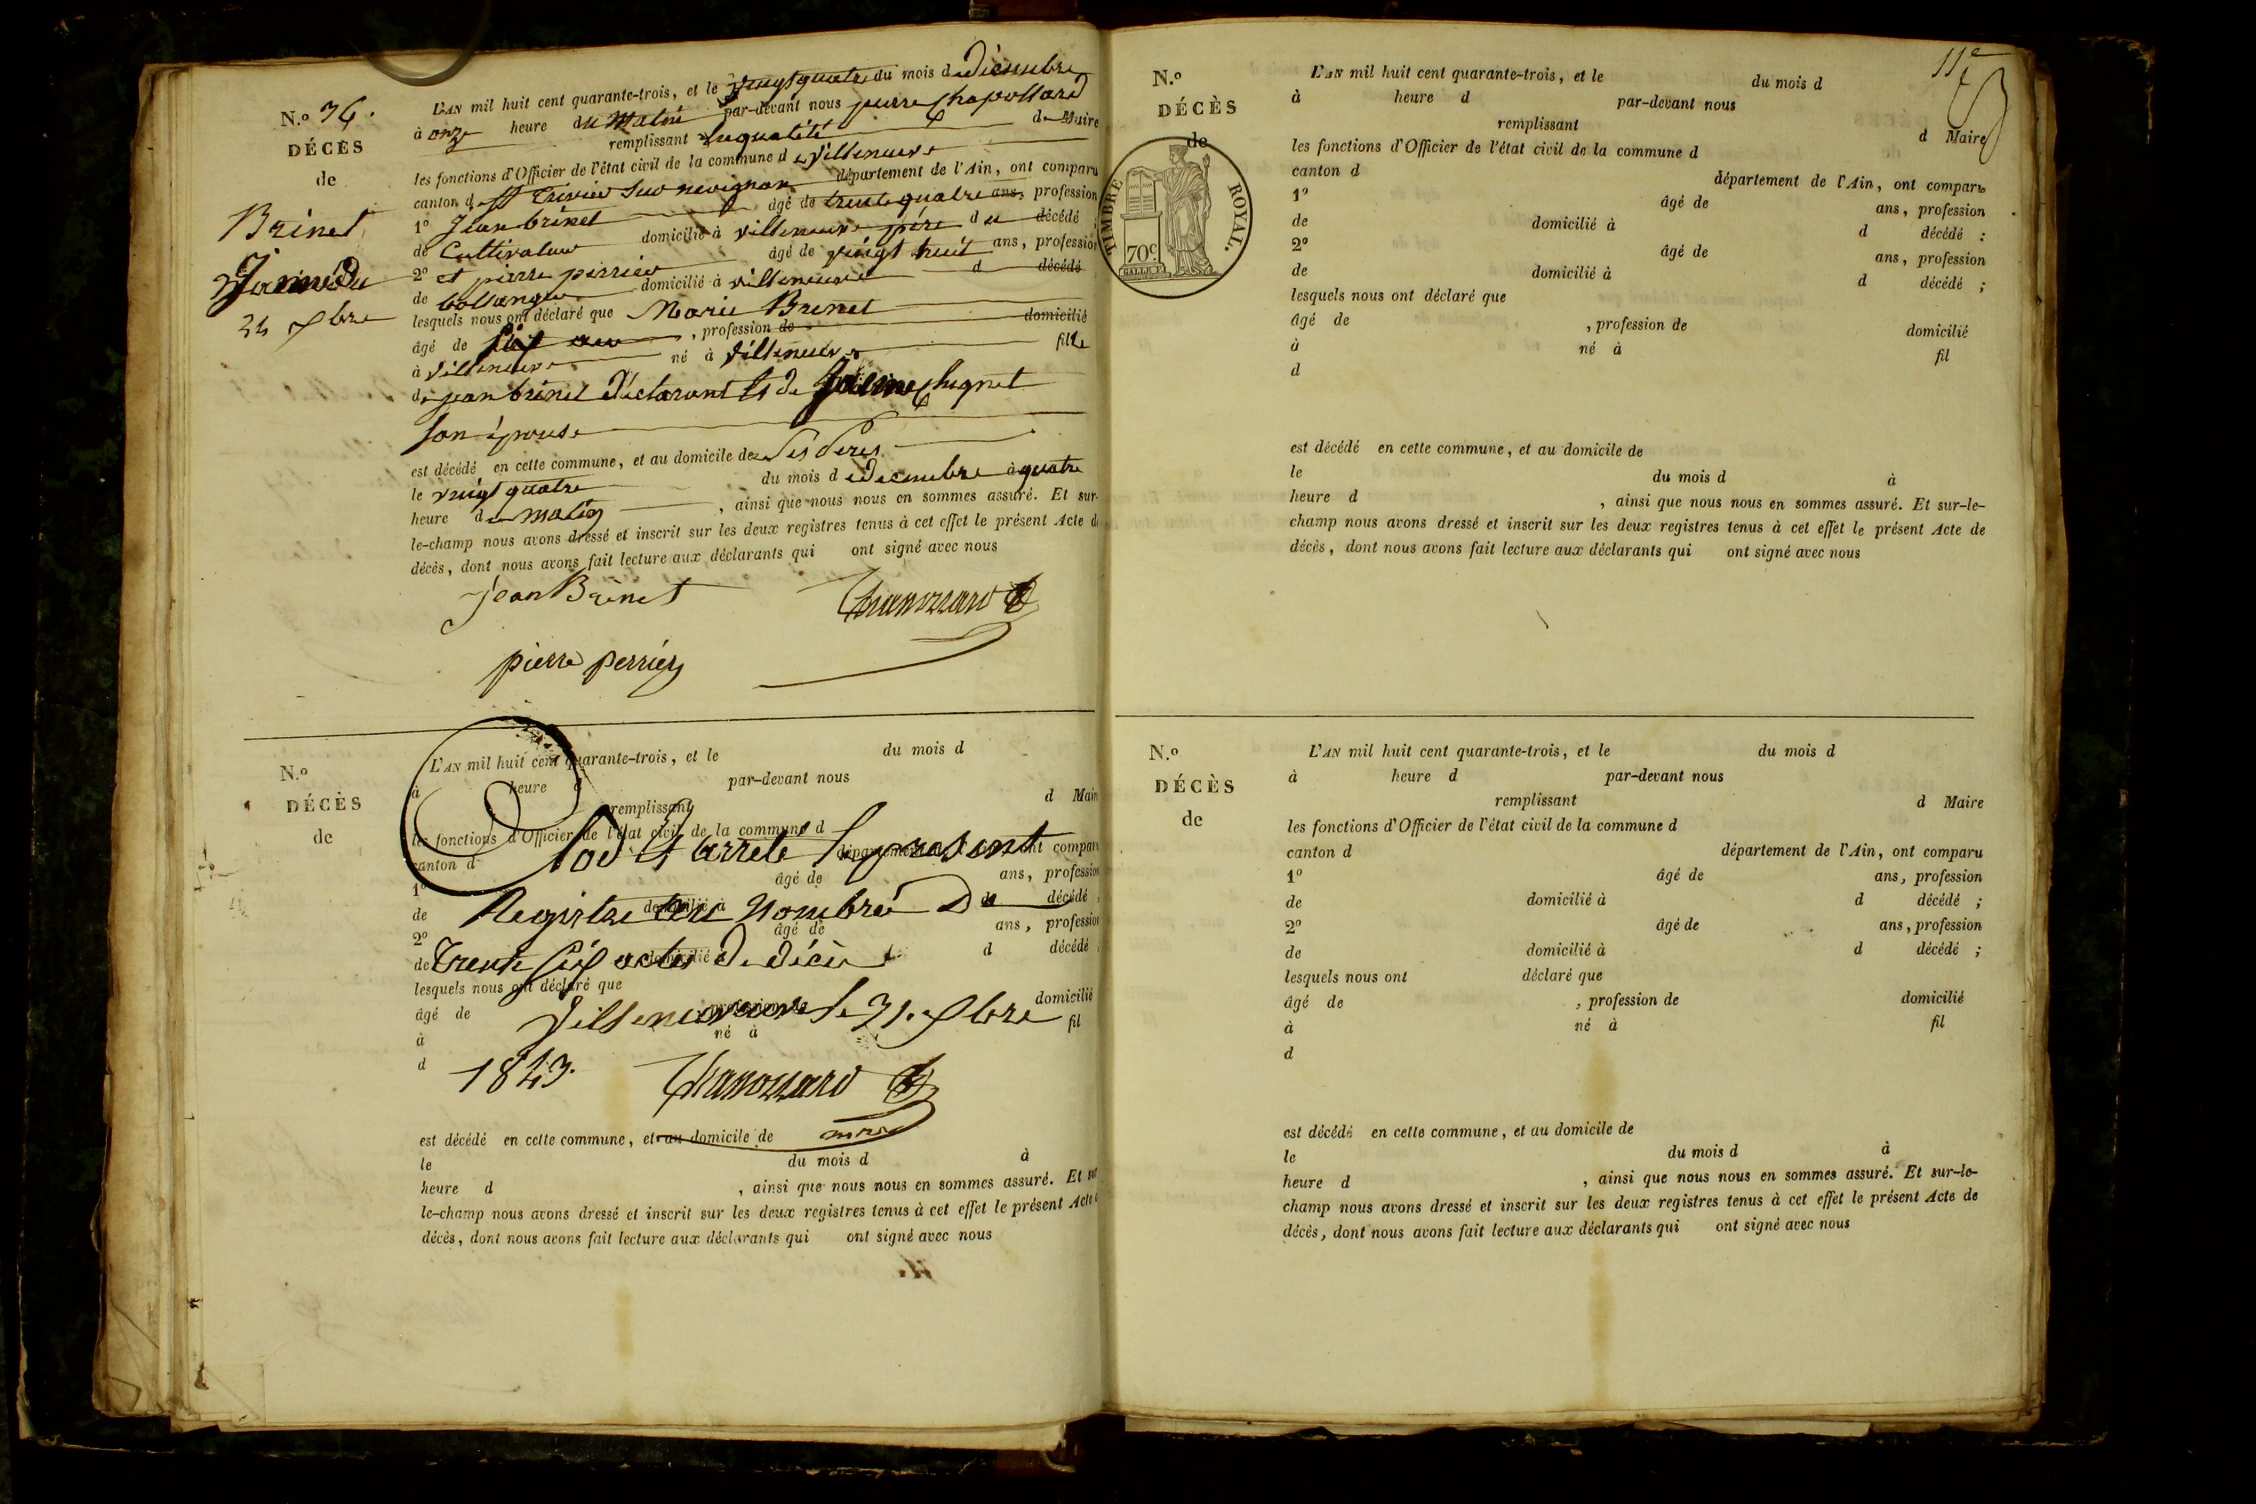 N.º 36.
DÉCÈS
de
Brinet
Marie du
24 Xbre
L'AN mil huit cent quarante-trois, et le vingt quatre du mois de décembre
à onze heure du matin par-devant nous pierre Chapollard
remplissant la qualité de Maire
les fonctions d'Officier de l'état civil de la commune de villeneuve
canton de st trivier département de l'Ain, ont comparu
1º Jean brinet âgé de trente quatre ans, profession
de Cultivateur domicilié à villeneuve père du décédé ;
2º et pierre perrier âgé de vingt huit ans, profession
de bollanger domicilié à villeneuve d décédé
lesquels nous ont déclaré que Marie Brinet
âgé de six ans, profession de domicilié
à villeneuve né à villeneuve fille
de jean brinet déclarant et de Jeanne Chignet
son épouse
est décédé en cette commune, et au domicile de ses Peres
le vingt quatre du mois de decembre à quatre
heure du matin, ainsi que nous nous en sommes assuré. Et sur-
le-champ nous avons dressé et inscrit sur les deux registres tenus à cet effet le présent Acte de
décès, dont nous avons fait lecture aux déclarants qui ont signé avec nous
jean Brinet
pierre perrier
N.º
DÉCÈS
de
L'AN mil huit cent quarante-trois, et le du mois d
à heure d par-devant nous
remplissant d Maire
les fonctions d'Officier de l'état civil de la commune d
canton d département ont comparu
1º âgé de ans, profession
de domicilié à d décédé ;
2º âgé de ans, profession
de domicilié d décédé ;
lesquels nous ont déclaré que
âgé de profession de domicilié
à né à fil
d
Clos et arrêté le present
Registre au nombre de
trente six actes de décès
Villeneuve le 31. Xbre
1843.
est décédé en cette commune, et au domicile de
le du mois d à
heure d , ainsi que nous nous en sommes assuré. Et sur
le-champ nous avons dressé et inscrit sur les deux registres tenus à cet effet le présent Acte
décès, dont nous avons fait lecture aux déclarants qui ont signé avec nous
11e
N.º
DÉCÈS
de
TIMBRE ROYAL.
70c
L'AN mil huit cent quarante-trois, et le du mois d
à heure d par-devant nous
remplissant d Maire
les fonctions d'Officier de l'état civil de la commune d
canton d département de l'Ain, ont comparu
1º âgé de ans, profession
de domicilié à d décédé ;
2º âgé de ans, profession
de domicilié à d décédé ;
lesquels nous ont déclaré que
âgé de , profession de domicilié
à né à fil
d
est décédé en cette commune, et au domicile de
le du mois d à
heure d , ainsi que nous nous en sommes assuré. Et sur-le-
champ nous avons dressé et inscrit sur les deux registres tenus à cet effet le présent Acte de
décès, dont nous avons fait lecture aux déclarants qui ont signé avec nous
N.º
DÉCÈS
de
L'AN mil huit cent quarante-trois, et le du mois d
à heure d par-devant nous
remplissant d Maire
les fonctions d'Officier de l'état civil de la commune d
canton d département de l'Ain, ont comparu
1º âgé de ans, profession
de domicilié à d décédé ;
2º âgé de ans, profession
de domicilié à d décédé ;
lesquels nous ont déclaré que
âgé de , profession de domicilié
à né à fil
d
est décédé en cette commune, et au domicile de
le du mois d à
heure d , ainsi que nous nous en sommes assuré. Et sur-le-
champ nous avons dressé et inscrit sur les deux registres tenus à cet effet le présent Acte de
décès, dont nous avons fait lecture aux déclarants qui ont signé avec nous